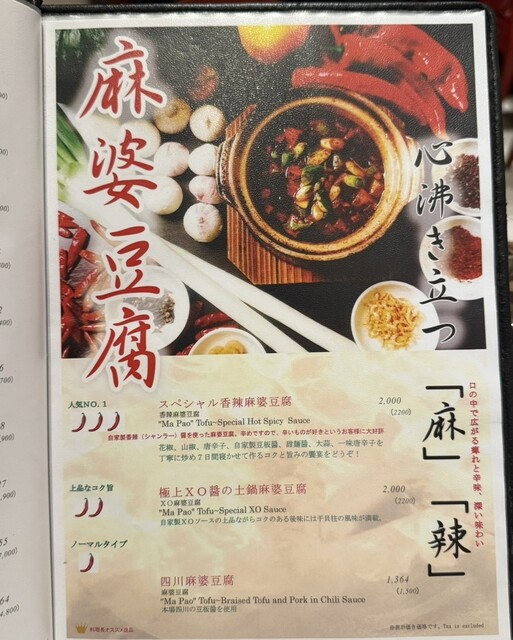 麻婆豆腐
心沸き立つ
「麻」「辣」
口の中で広がる痺れと辛味、深い味わい
人気NO.1
スペシャル香辣麻婆豆腐
2,000
(2200)
香辣麻婆豆腐
"Ma Pao" Tofu~Special Hot Spicy Sauce
自家製香辣(シャンラー)醤を使った麻婆豆腐。辛めですので、辛いものが好きというお客様に大好評
花椒、山椒、唐辛子、自家製豆板醤、甜麺醤、大蒜、一味唐辛子を
丁寧に炒め7日間寝かせて作るコクと旨みの饗宴をどうぞ!
上品なコク旨
極上XO醤の土鍋麻婆豆腐
2,000
(2200)
XO麻婆豆腐
"Ma Pao" Tofu~Special XO Sauce
自家製XOソースの上品ながらコクのある後味には干貝柱の風味が満載。
ノーマルタイプ
四川麻婆豆腐
1,364
(1,500)
麻婆豆腐
"Ma Pao" Tofu~Braised Tofu and Pork in Chili Sauce
本場四川の豆板醤を使用
料理長オススメ逸品